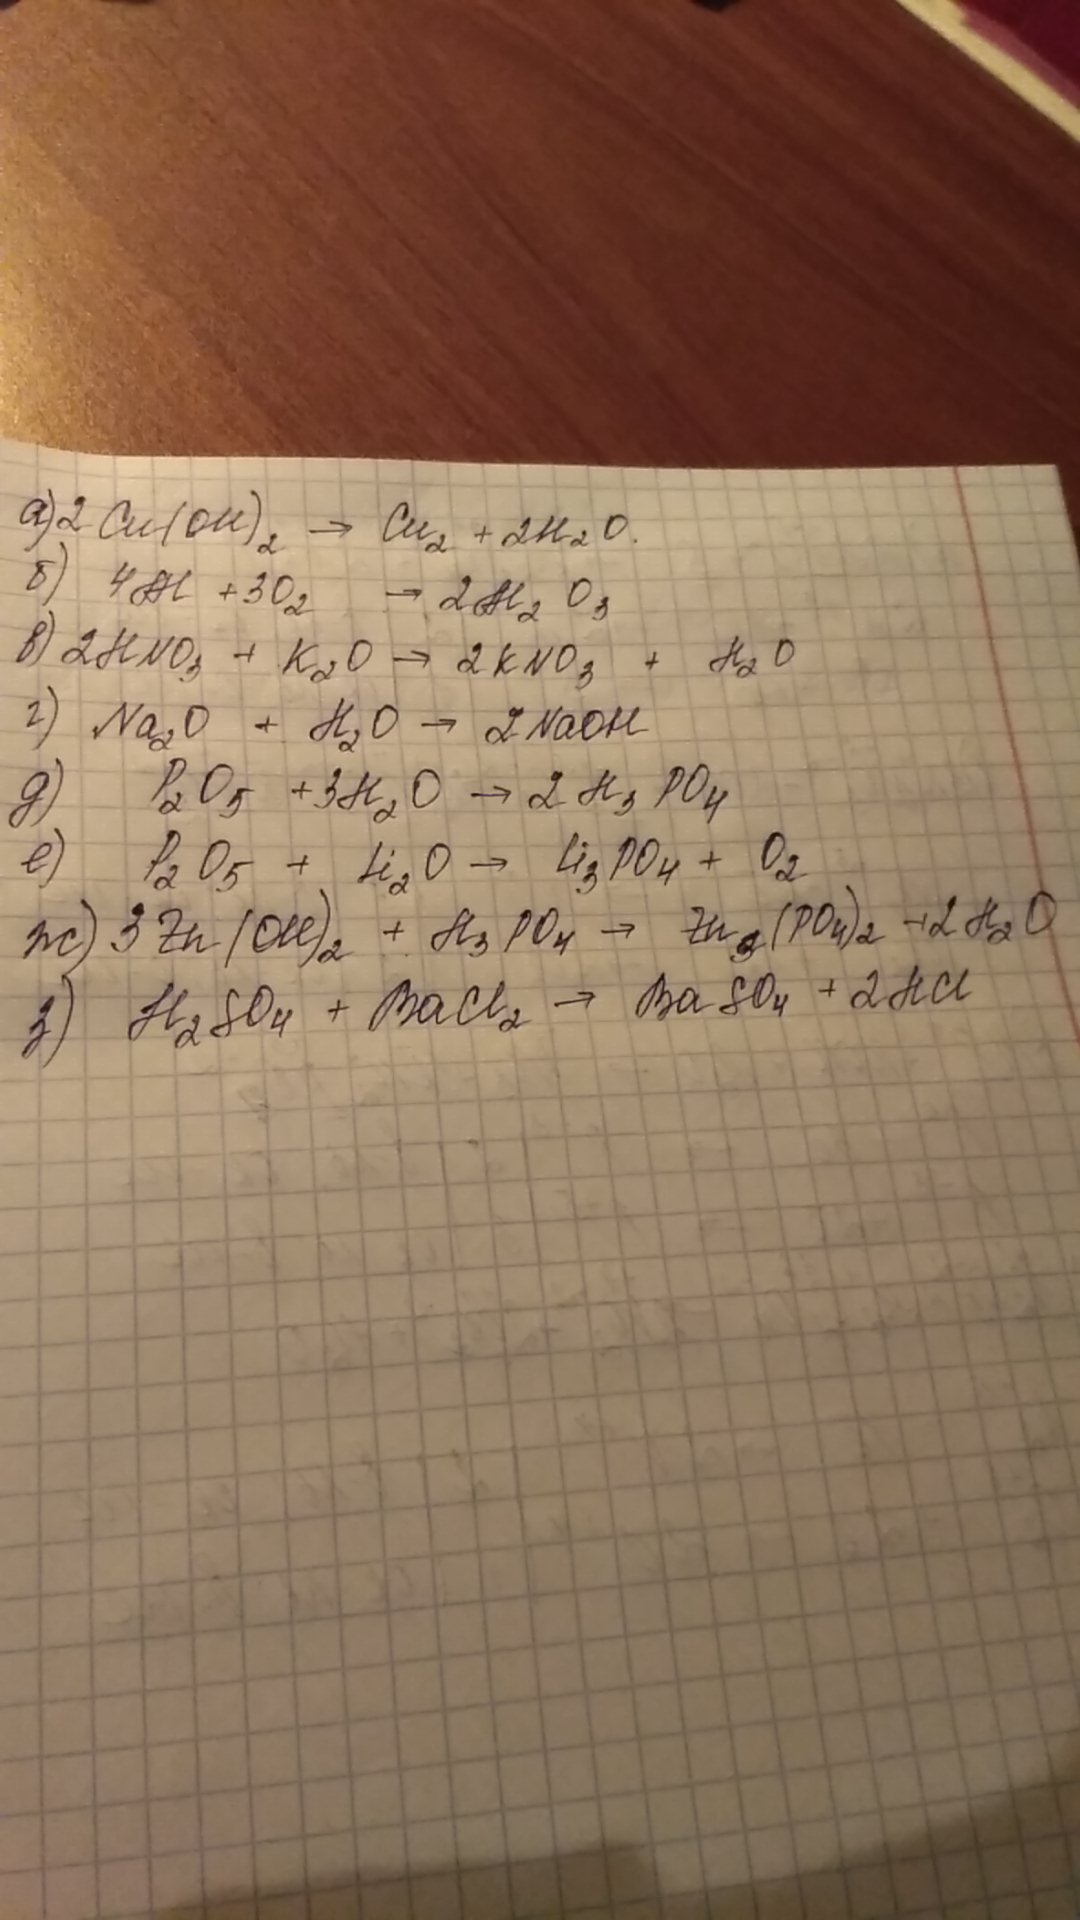 а) 2 Cu(OH)₂ → Cu₂ + 2H₂O.
б) 4Al + 3O₂ → 2Al₂O₃
в) 2HNO₃ + K₂O → 2KNO₃ + H₂O
г) Na₂O + H₂O → 2NaOH
д) P₂O₅ + 3H₂O → 2H₃PO₄
е) P₂O₅ + Li₂O → Li₃PO₄ + O₂
ж) 3Zn(OH)₂ + H₃PO₄ → Zn₃(PO₄)₂ + 2H₂O
з) H₂SO₄ + BaCl₂ → BaSO₄ + 2HCl